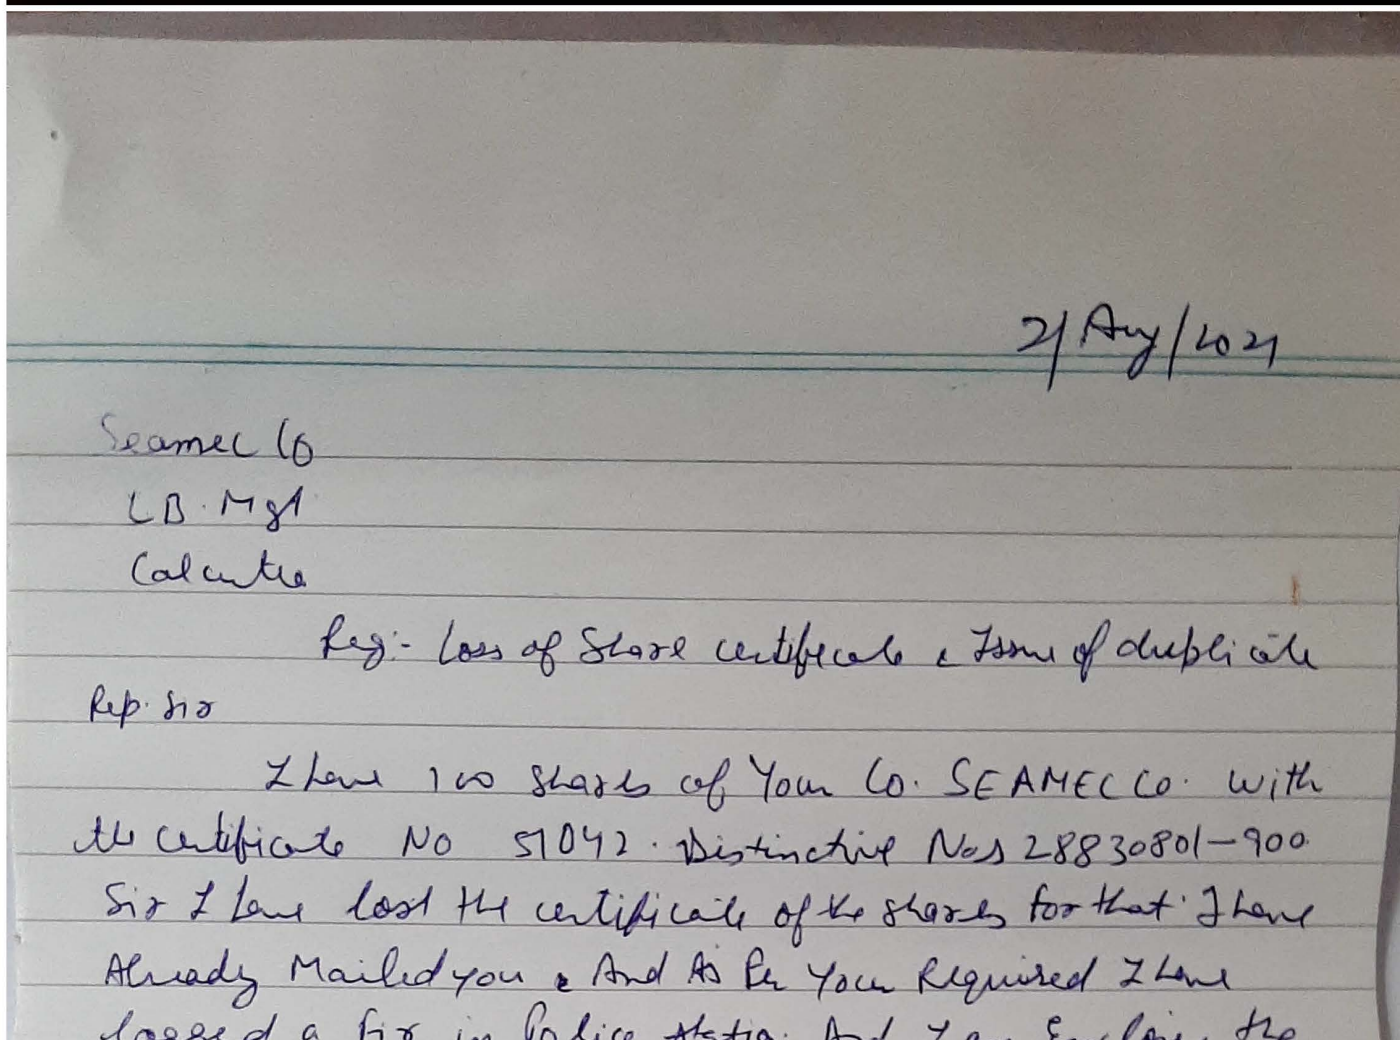 21/Aug/2021
Seamec Co
CB. Mgt
Calcutta
Reg:- Loss of Share certificate & Issue of duplicate
Rep. Sir
I have 100 shares of Your Co. SEAMEC Co. with
the certificate No 51042. Distinctive Nos 28830801-900
Sir I have lost the certificate of the shares for that I have
Already Mailed you & And As Per Your Required I have
logged a Fir in Police Station. And I am Enclosing the